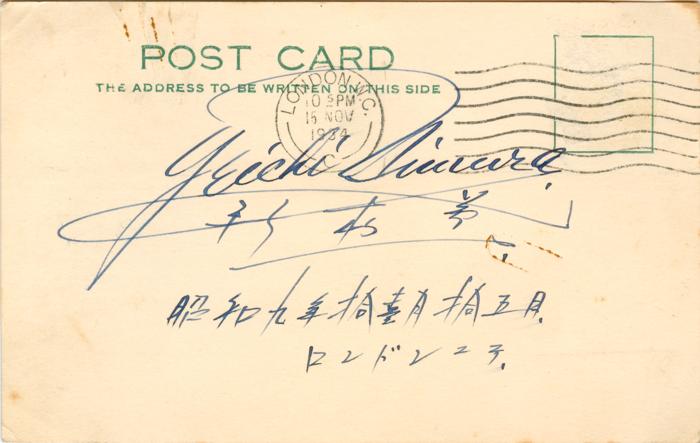 POST CARD
THE ADDRESS TO BE WRITTEN ON THIS SIDE
LONDON. W.C.
10 PM
15 NOV
1934
C
昭和九年拾壹月拾五日.
ロンドンニテ.